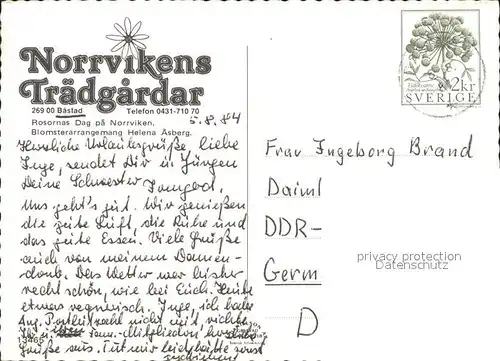 Norrvikens
Trädgårdar
269 00 Båstad Telefon 0431-710 70
Rosornas Dag på Norrviken,
Blomsterarrangemang Helena Åsberg.
5.8.84
Herzliche Urlaubsgrüße, liebe
Inge, sendet Dir u. Jürgen
Deine Schwester
Uns geht's gut. Wir genießen
die gute Luft, die Ruhe und
das gute Essen. Viele Grüße
auch von meinem Damen-
Das Wetter war bisher
recht schön, wie bei Euch. Heute
etwas regnerisch. Inge, ich habe
nicht mit
Grüße aus. Tut mir leid
13465
2kr
SVERIGE
Frau Ingeborg Brand
Daiml
DDR-
Germ
D
privacy protection
Datenschutz